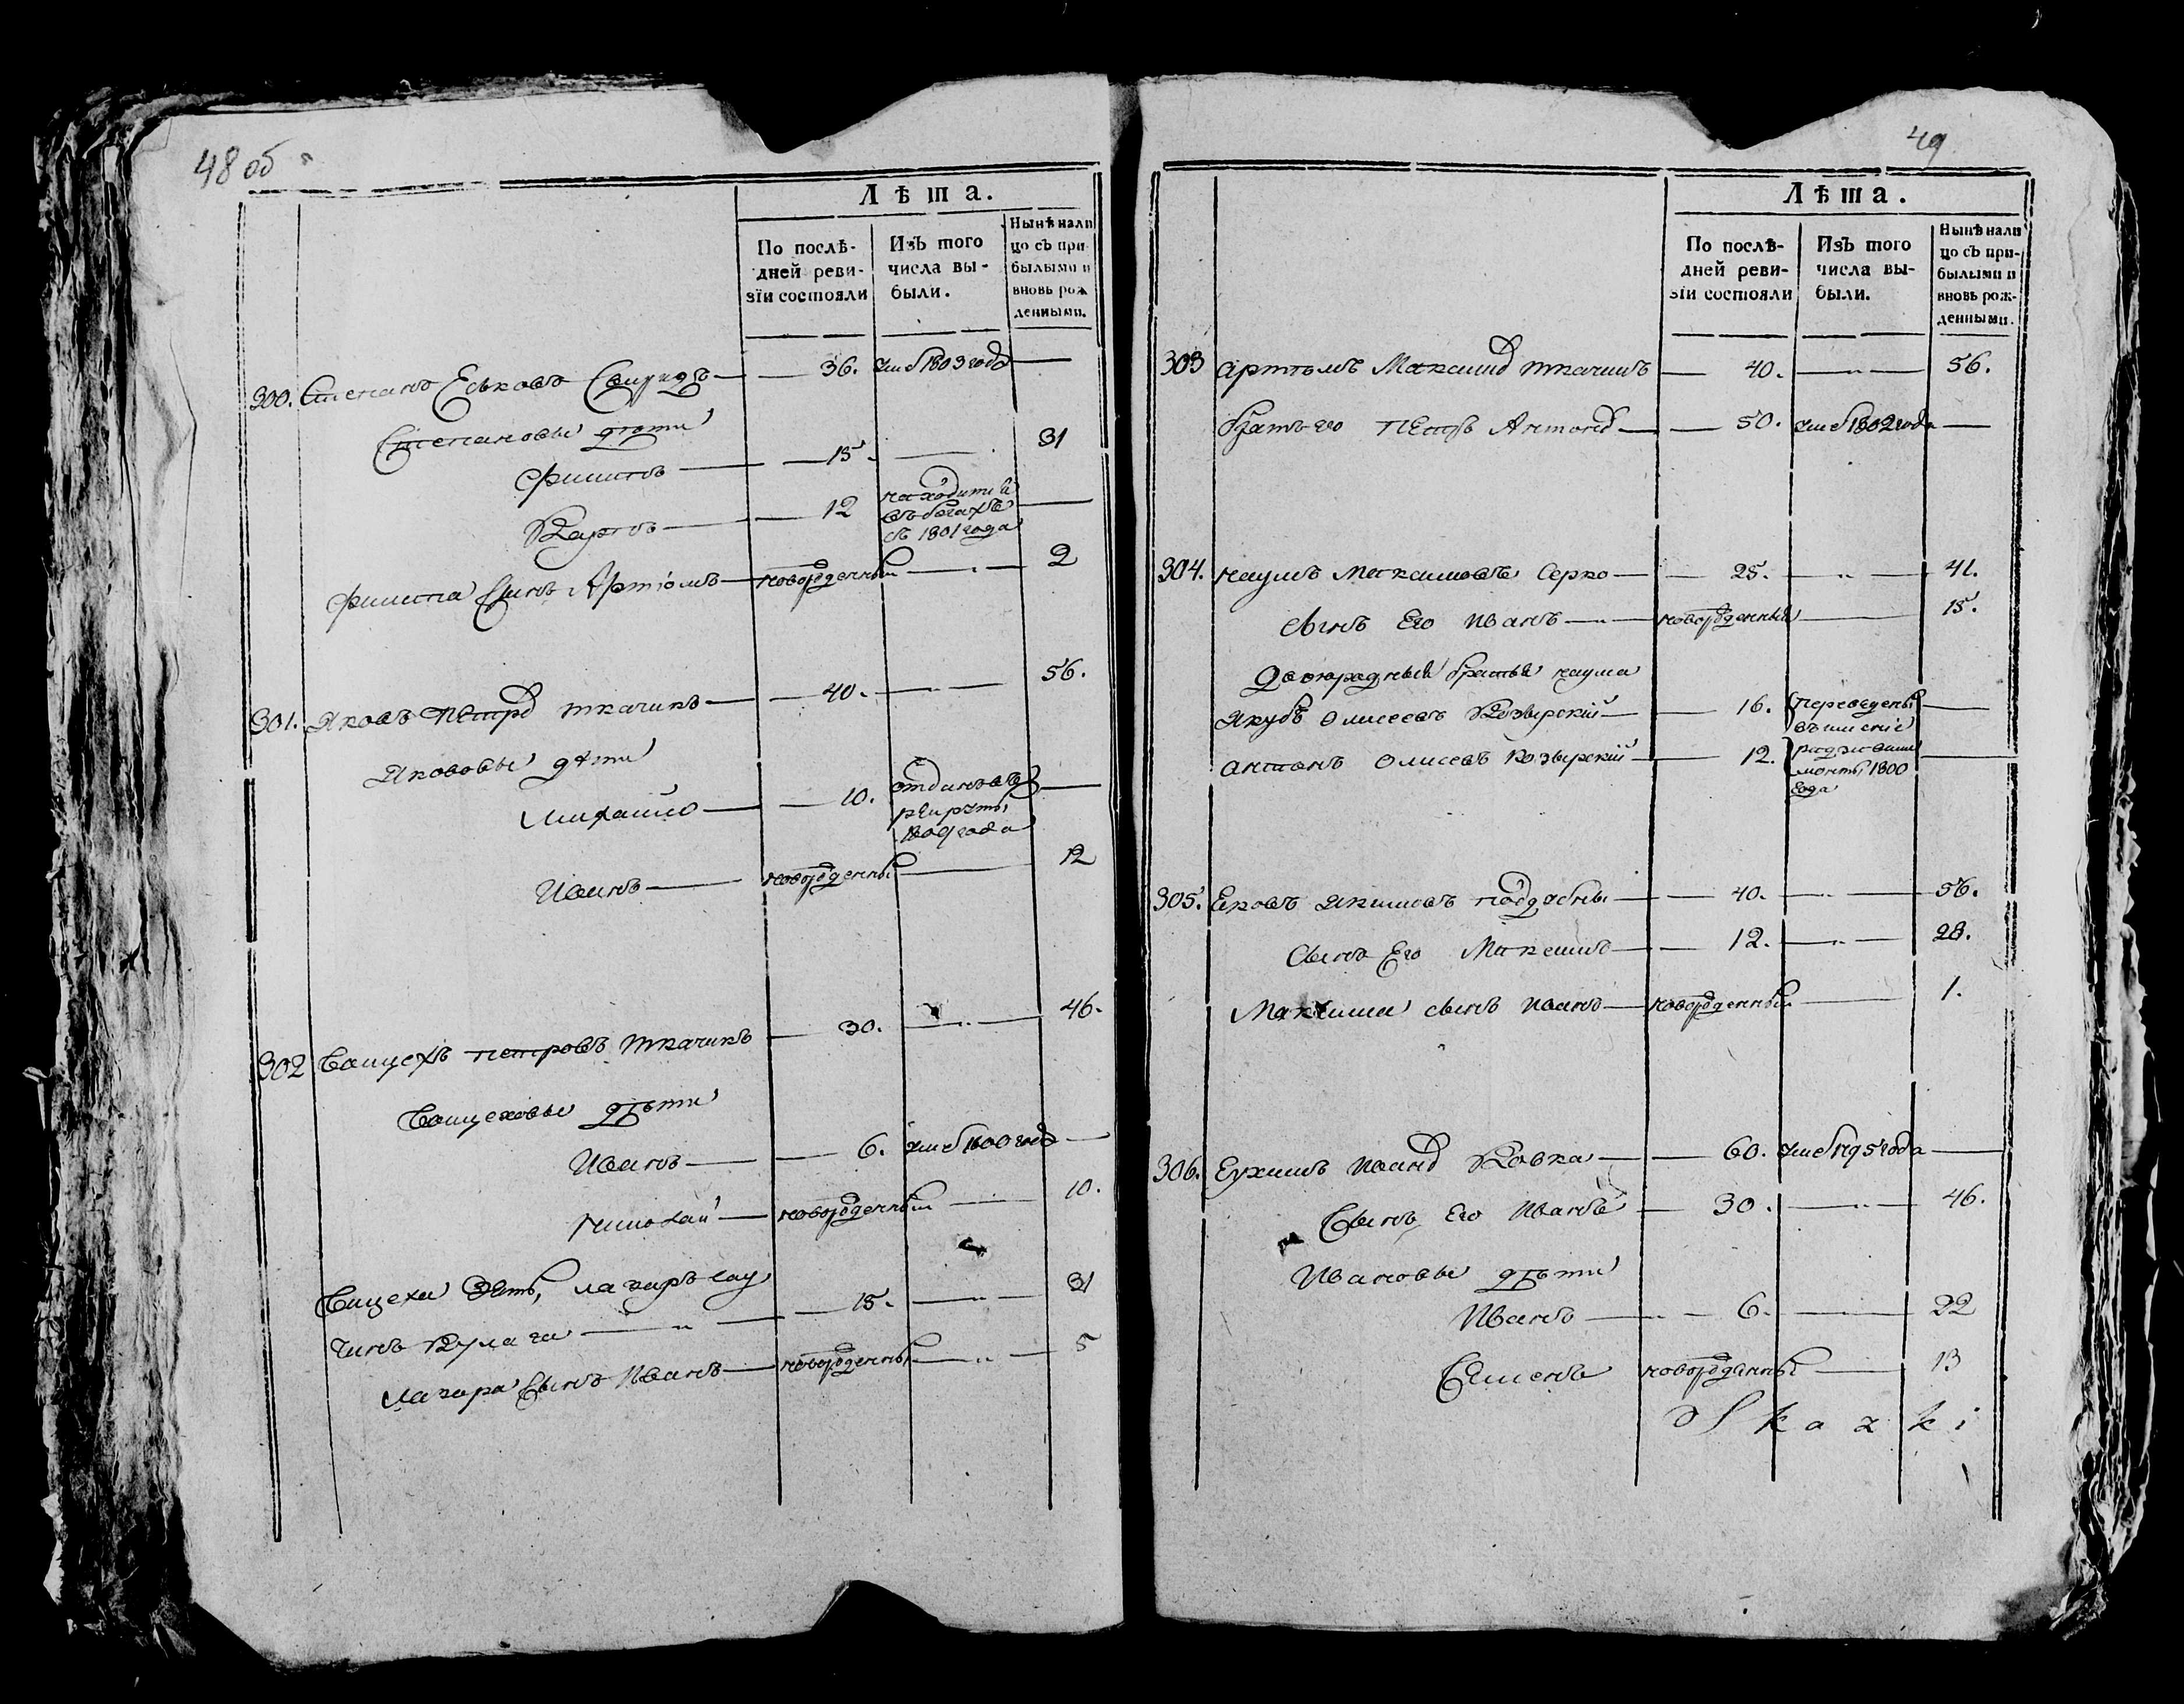 48 об
Лѣта.
По послѣ-
дней реви-
зїи состояли
Изъ того
числа вы-
были.
Нынѣ нали
цо съ при
былыми и
вновь рож
денными.
300. Степанъ Еськовъ Свиридъ — 36. умеръ 1803 года —
Степановы дѣти
Филипъ — 15. — 31
Карпъ — 12 находится въ бегахъ съ 1801 года —
Филипа Сынъ Артіомъ — новорожденный — 2
301. Яковъ Петровъ ткачикъ — 40. — 56.
Якововы дѣти
Михайло — 10. отданъ въ рекруты 1809 года —
Иванъ — новорожденный — 12
302 Войцехъ петровъ ткачикъ — 30. — 46.
Войцеховы дѣти
Иванъ — 6. умеръ 1800 года —
Николай — новорожденный — 10.
Войцеха Зять, лазаръ сау
чикъ Кулага — 15. — 31
Лазара Сынъ Иванъ — новорожденный — 5
49
Лѣта.
По послѣ-
дней реви-
зїи состояли
Изъ того
числа вы-
были.
Нынѣ нали
цо съ при-
былыми и
вновь рож-
денными.
303 Артемъ Максимовъ ткачикъ — 40. — 56.
братъ его Петръ Антоновъ — 50. умеръ 1802 года —
304. Наумъ Максимовъ Серко — 25. — 41.
сынъ Его Иванъ — новорожденный — 15.
Двоюродныи братья наума
Якубъ Олисеевъ Козырскій — 16. переведены —
въ имѣніе
Антонъ Олисеевъ Козырскій — 12. —
1800
года
305. Яковъ Якимовъ поддубны — 40. — 56.
Сынъ Его Максимъ — 12. — 28.
Максима сынъ Иванъ — новорожденный — 1.
306. Еухимъ Ивановъ Кавка — 60. умеръ 1795 года —
Сынъ Его Иванъ — 30. — 46.
Ивановы дѣти
Иванъ — 6. — 22
Семенъ новорожденный — 13
Skazki